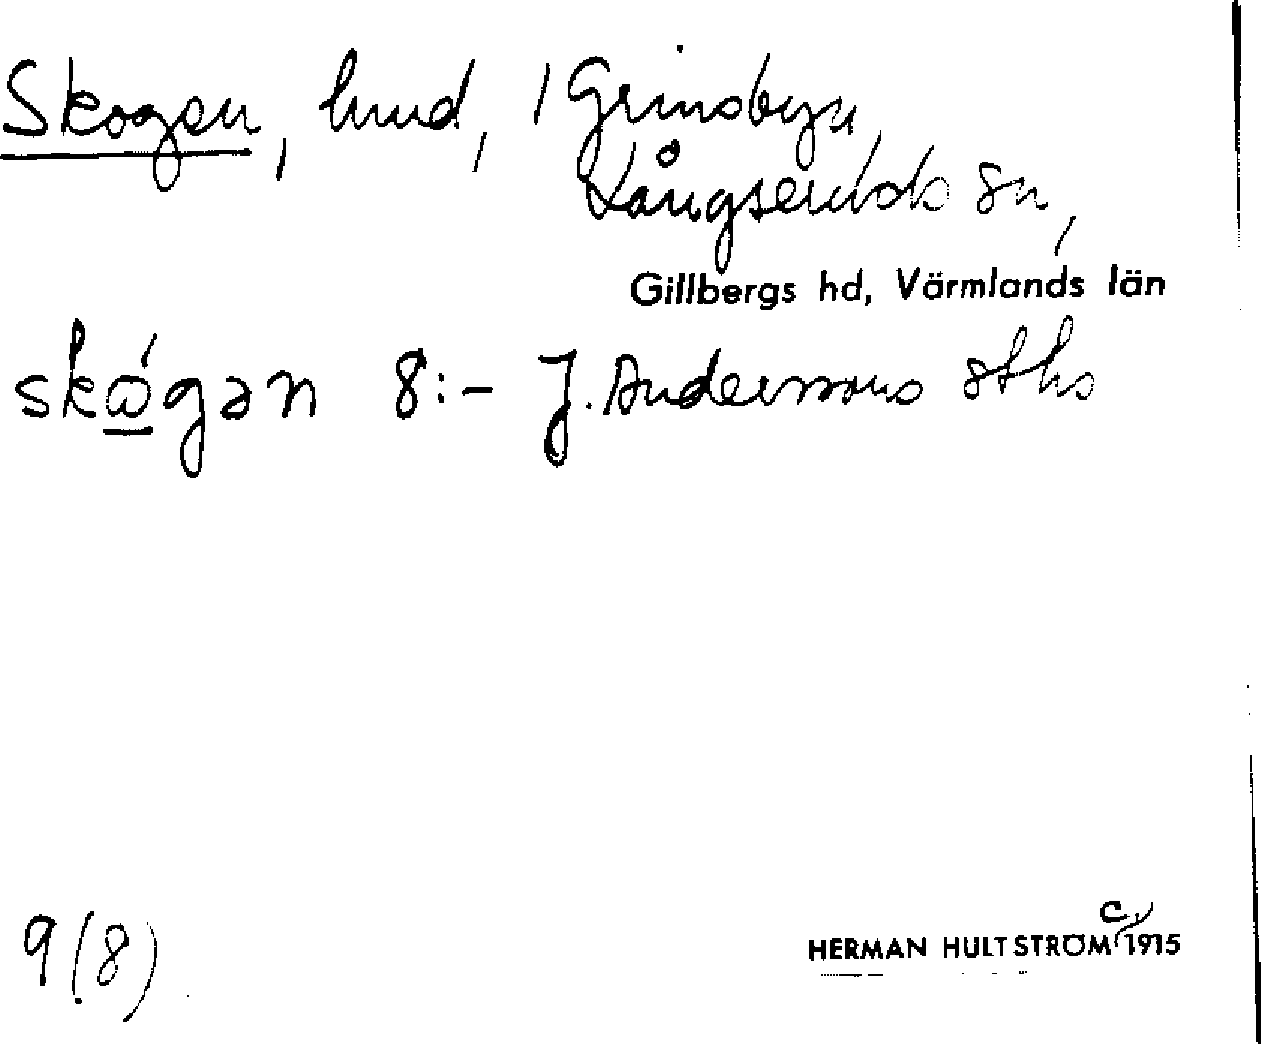 Skogen, hmd, i Grinsbyn,
Långseruds sn,
Gillbergs hd, Värmlands län
skɷ́gən 8:- J. Anderssons sths
9(8)
c.
HERMAN HULTSTRÖM 1915